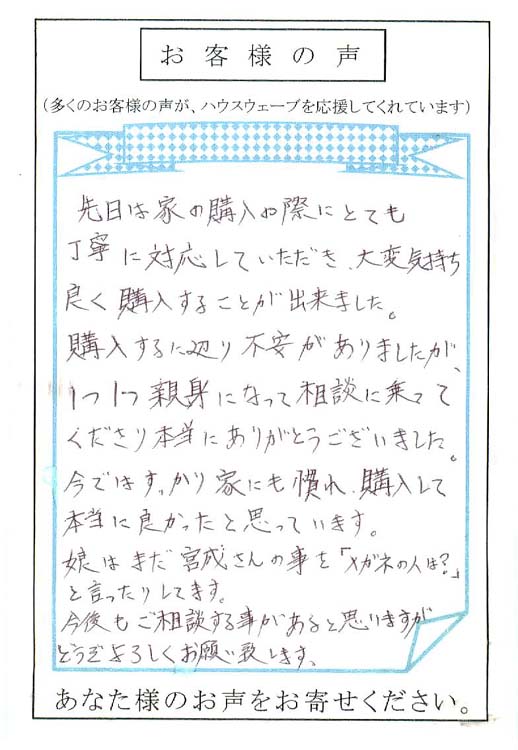 お客様の声
(多くのお客様の声が、ハウスウェーブを応援してくれています)
先日は家の購入の際にとても
丁寧に対応していただき、大変気持ち
良く購入することが出来ました。
購入するに辺り不安がありましたが、
1つ1つ親身になって相談に乗って
くださり本当にありがとうございました。
今ではすっかり家にも慣れ、購入して
本当に良かったと思っています。
娘はまだ宮成さんの事を「メガネの人は?」
と言ったりしてます。
今後もご相談する事があると思りますが
どうぞよろしくお願い致します、
あなた様のお声をお寄せください。